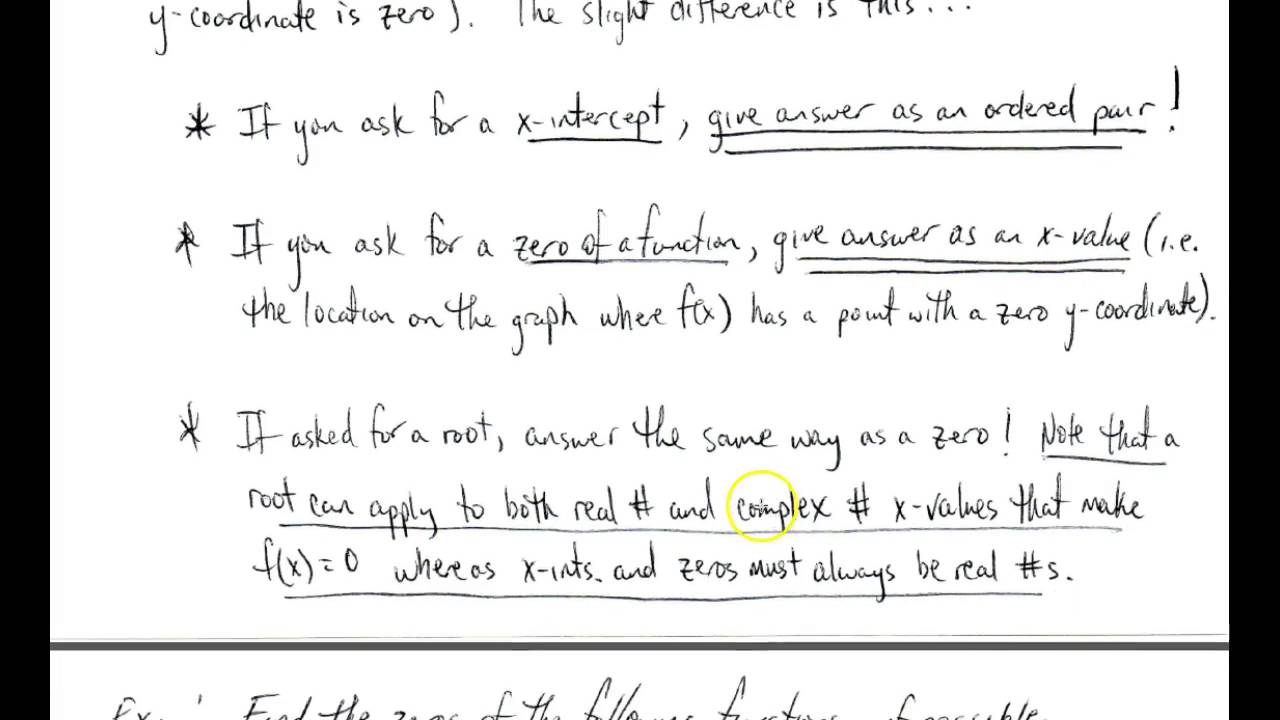 y-coordinate is zero). The slight difference is this...
* If you ask for a x-intercept, give answer as an ordered pair!
* If you ask for a zero of a function, give answer as an x-value (i.e.
the location on the graph where f(x) has a point with a zero y-coordinate).
* If asked for a root, answer the same way as a zero! Note that a
root can apply to both real # and complex # x-values that make
f(x)=0 whereas x-ints. and zeros must always be real #s.
Ex. Find the zeros of the following functions, if possible.